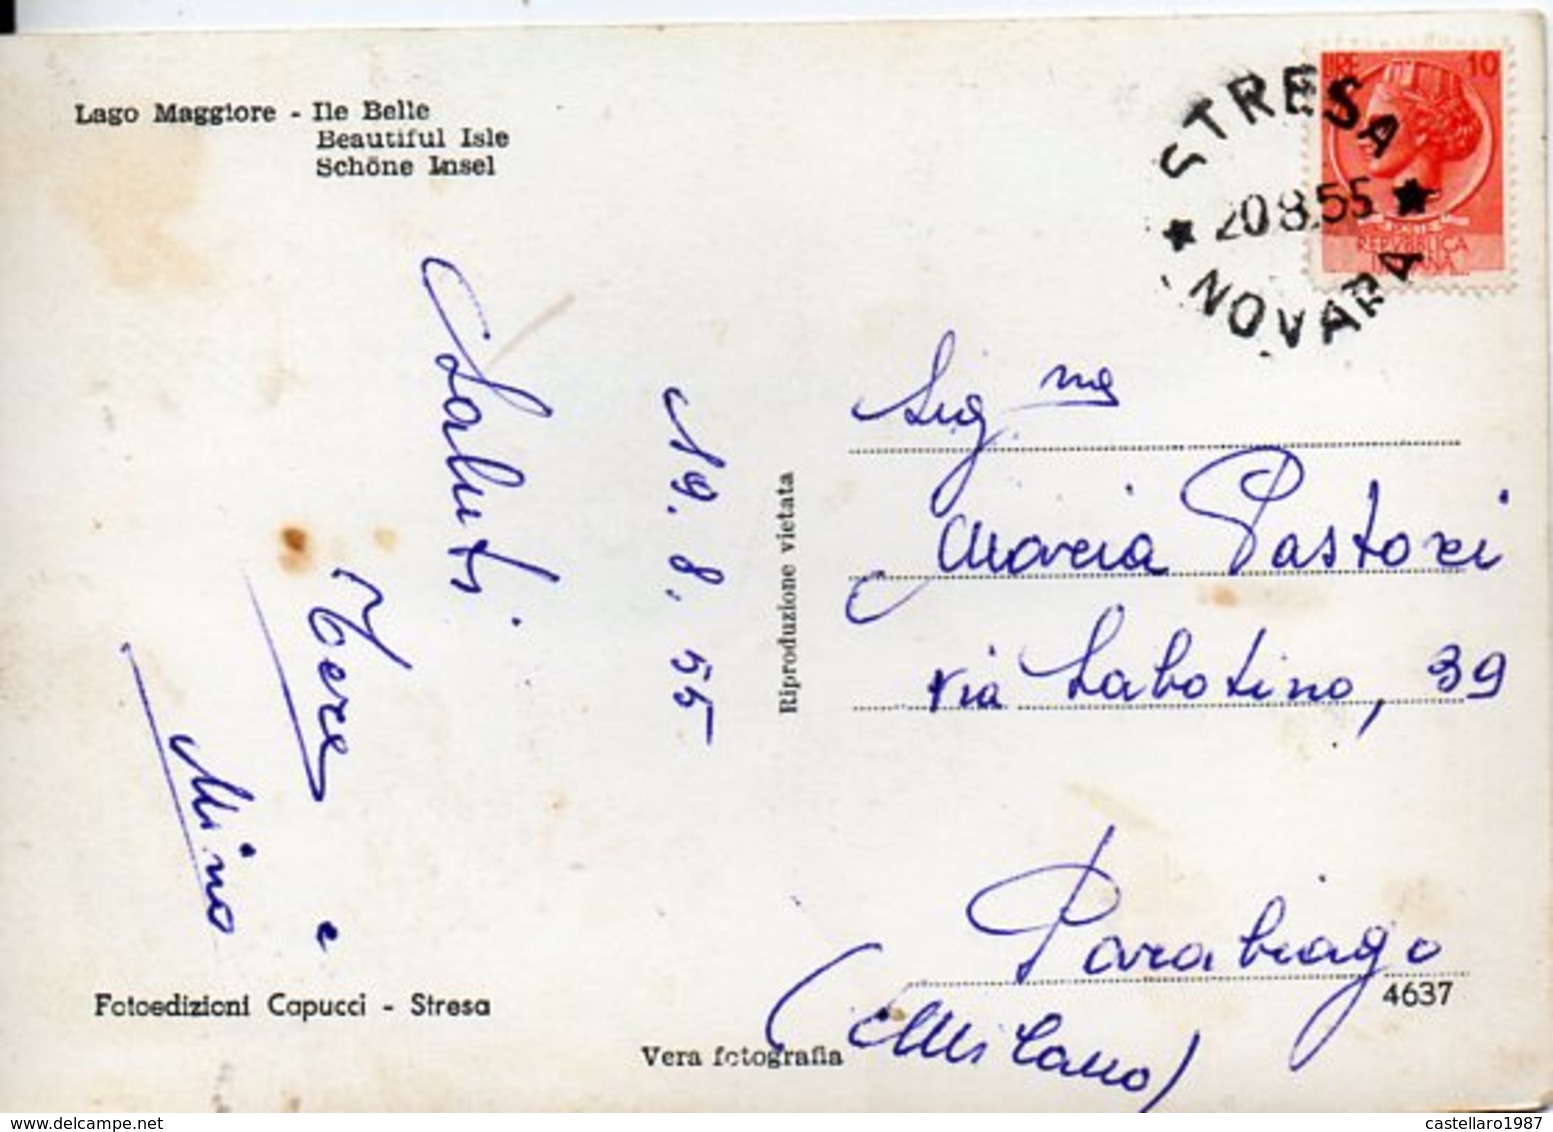 Lago Maggiore - Ile Belle
Beautiful Isle
Schöne Insel
LIRE 10
REPVBBLICA
ITALIANA
STRESA
20.8.55
NOVARA
Saluti
Tere e
Mino
19. 8. 55
Riproduzione vietata
Sig.na
Maria Pastori
via Sabotino, 39
Parabiago
(Milano)
4637
Fotoedizioni Capucci - Stresa
Vera fotografia
www.delcampe.net
castellaro1987